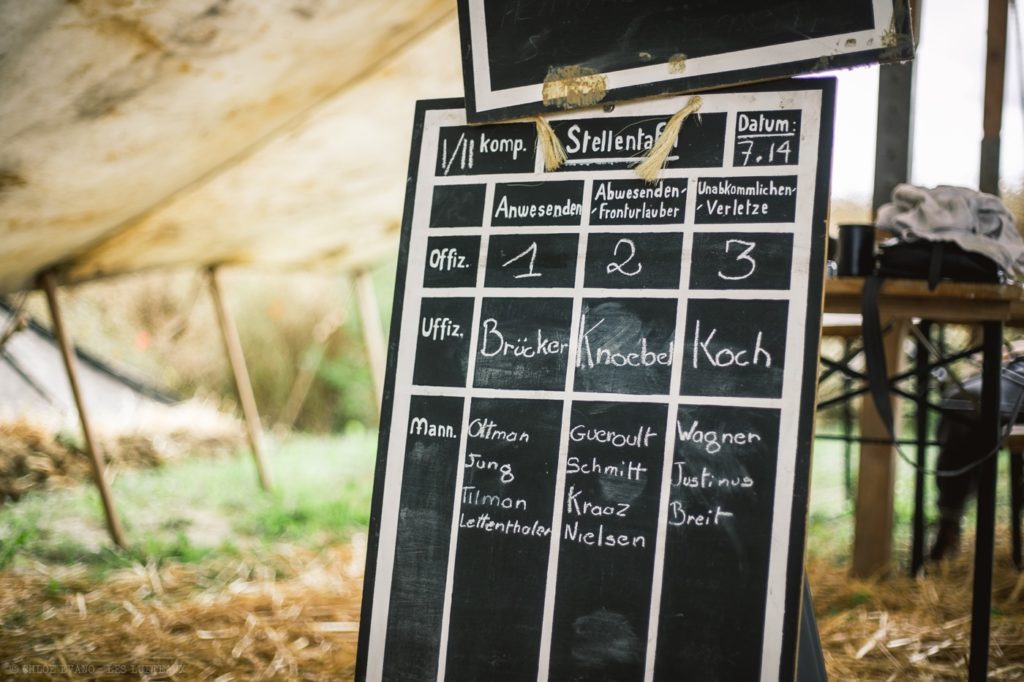 I/II komp.
Stellentafl
Datum:
7.14
Anwesenden
Abwesenden-
-Fronturlauber
Unabkömmlichen-
-Verletze
Offiz.
1
2
3
Uffiz.
Brücker
Knoebel
Koch
Mann.
Oltman
Gueroult
Wagner
Jung
Schmitt
Justinus
Tilman
Kraaz
Breit
Lettenthaler
Nielsen
© CHLOE EVANO - LES LUTTEAUX